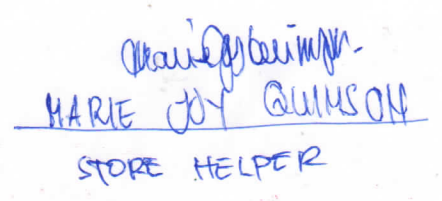 MARIE JOY QUIMSON
STORE HELPER